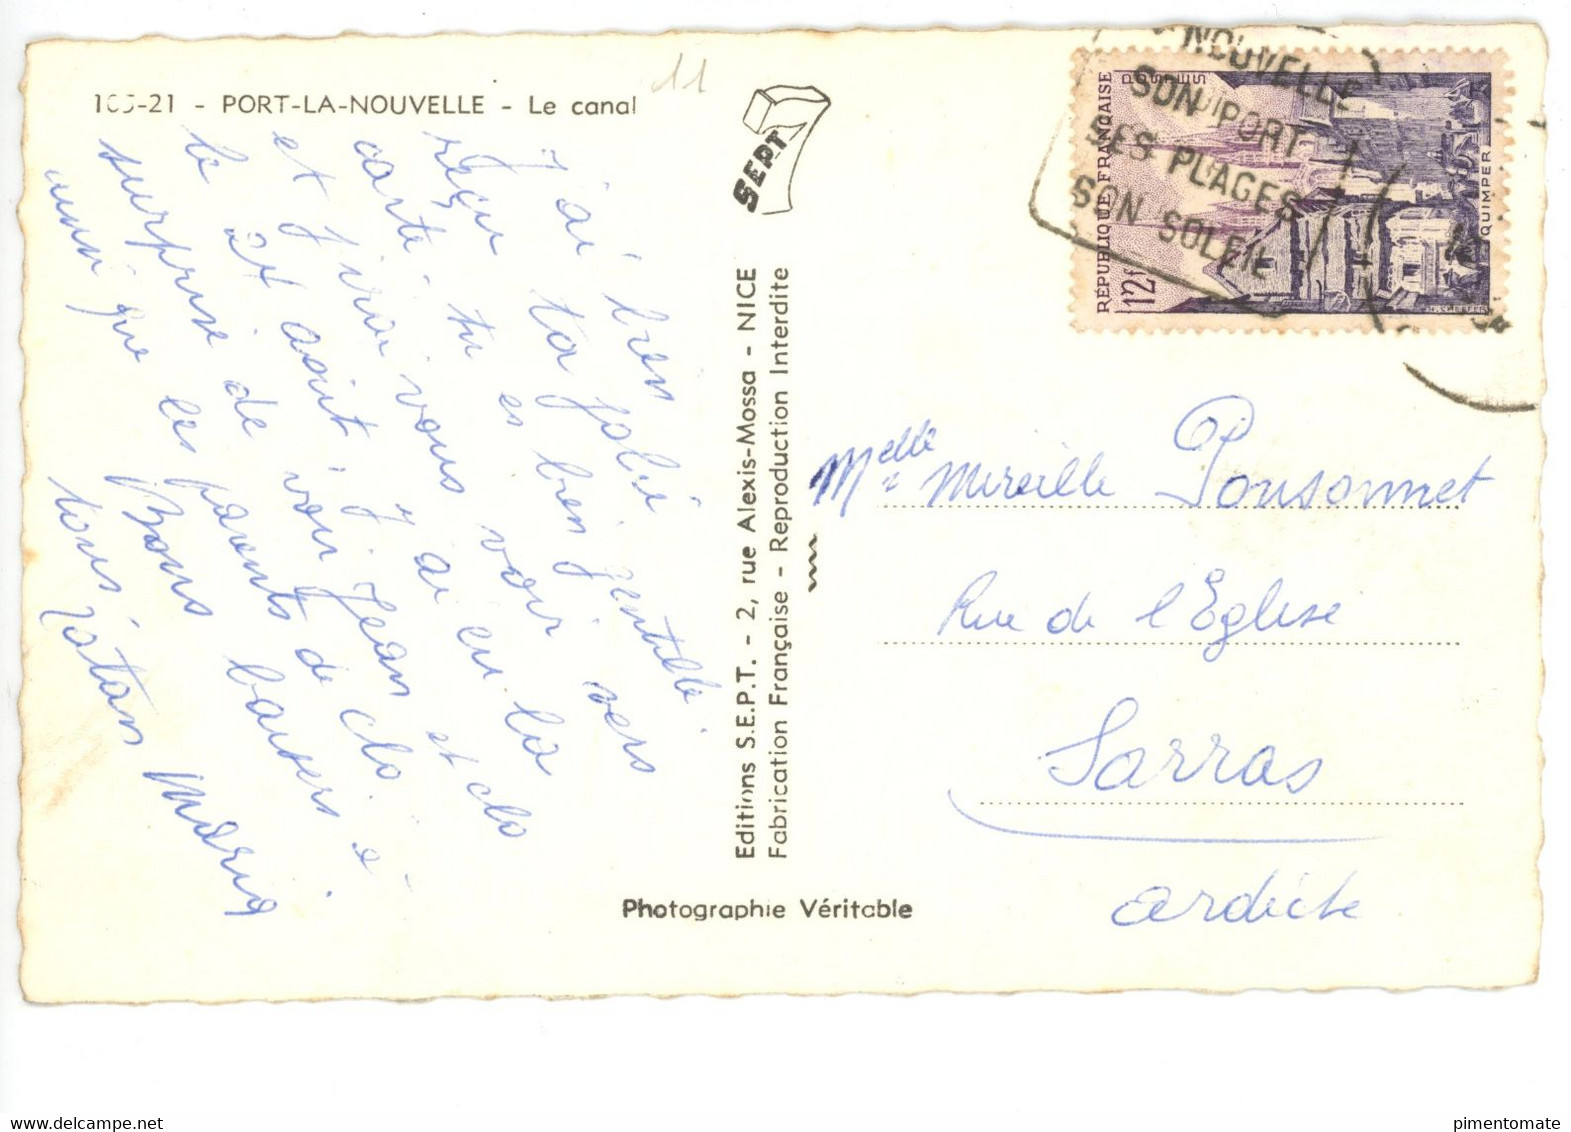 105-21 - PORT-LA-NOUVELLE - Le canal
11
J'ai bien
reçu ta jolie
carte. tu es bien gentille.
et j'irai vous voir vers
le 21 août, j'ai eu la
surprise de voir Jean et clo
ainsi que les parents de clo.
Bons baisers à
tous
Maria
SEPT
Editions S.E.P.T. - 2, rue Alexis-Mossa - NICE
Fabrication Française - Reproduction Interdite
Photographie Véritable
NOUVELLE
SON PORT
SES PLAGES
SON SOLEIL
RÉPUBLIQUE FRANÇAISE
POSTES
12f
QUIMPER
Melle Mireille Ponsonnet
Rue de l'Eglise
Sarras
Ardèche
pimentomate